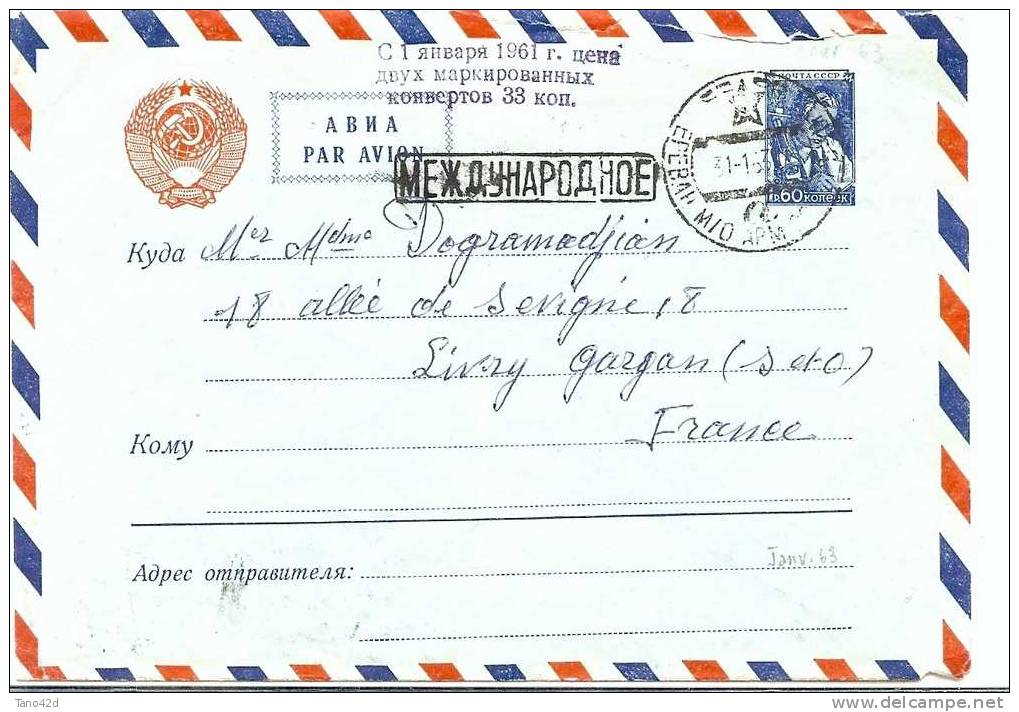 С 1 января 1961 г. цена
двух маркированных
конвертов 33 коп.
АВИА
PAR AVION
МЕЖДУНАРОДНОЕ
ПОЧТА СССР
1р.60 копеек
31-1
ЕРЕВАН М/О АРМ
63
Куда Mer Mdme Dogramadjian
18 allée de Sevigné 18
Livry Gargan (S et O)
France
Кому
Адрес отправителя:
Janv. 63
Tano42d
delcampe.net